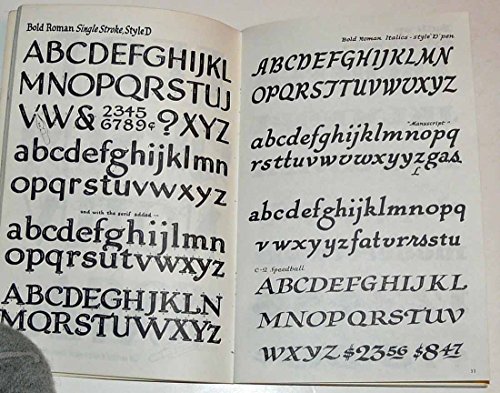 Bold Roman Single Stroke, Style D
ABCDEFGHIJKL
MNOPQRSTUJ
VW& 2345 ?XYZ
6789¢
abcdefghijklmn
opqrstuvwxyz
and with the serif added
abcdefghijlmn
opqrstuvwxyz
ABCDEHJKLN
MQRSTUWXYZ
Bold Roman Italics - style "D" pen
ABCDEFGHIJKLM
NOPQRSTUVWXYZ
"Manuscript"
abcdefghijklmnopq
rsttuvwvwxyzgas
abcdefghijklmnopq
rvwxyyzfatvrsstu
C-2 Speedball
ABCDEFGHIJKL
MNOPQRSTUV
WXYZ $23 56 $8 47
33